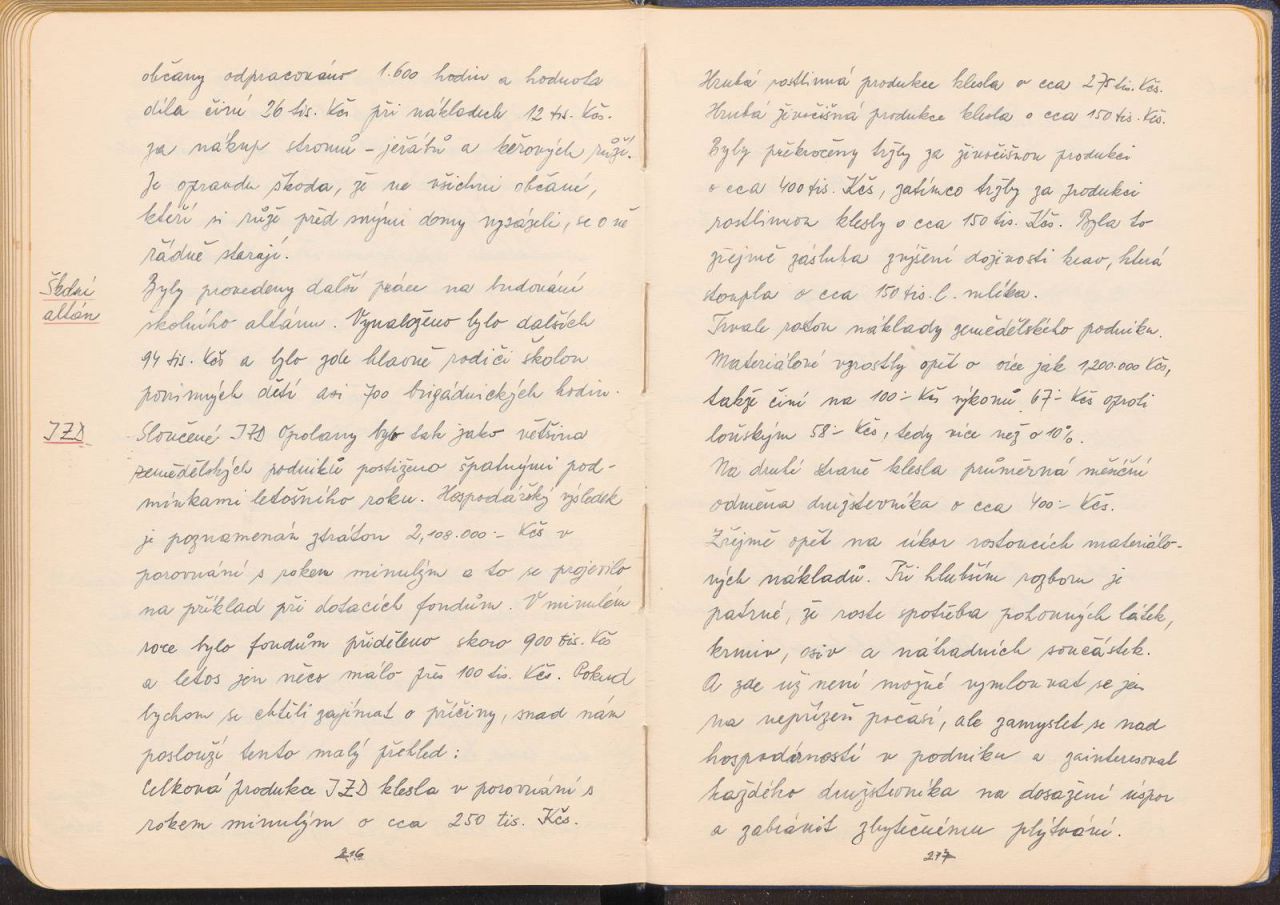 občany odpracováno 1.600 hodin a hodnota
díla činí 26 tis. Kčs při nákladech 12 tis. Kčs.
za nákup stromů - jeřátů a keřových růží.
Je opravdu škoda, že ne všichni občané,
kteří si růže před svými domy vysázeli, se o ně
řádně starají.
Školní
altán
Byly provedeny další práce na budování
školního altánu. Vynaloženo bylo dalších
94 tis. Kčs a bylo zde hlavně rodiči školou
povinných dětí asi 700 brigádnických hodin.
JZD
Sloučené JZD Opolany bylo tak jako většina
zemědělských podniků postiženo špatnými pod-
mínkami letošního roku. Hospodářský výsledek
je poznamenán ztrátou 2,108.000:- Kčs v
porovnání s rokem minulým a to se projevilo
na příklad při dotacích fondům. V minulém
roce bylo fondům přiděleno skoro 900 tis. Kčs
a letos jen něco málo přes 100 tis. Kčs. Pokud
bychom se chtěli zajímat o příčiny, snad nám
poslouží tento malý přehled:
Celková produkce JZD klesla v porovnání s
rokem minulým o cca 250 tis. Kčs.
216
Hrubá rostlinná produkce klesla o cca 275 tis. Kčs.
Hrubá živočišná produkce klesla o cca 150 tis. Kčs.
Byly překročeny tržby za živočišnou produkci
o cca 400 tis. Kčs, zatímco tržby za produkci
rostlinnou klesly o cca 150 tis. Kčs. Byla to
zřejmě zásluha zvýšení dojivosti krav, která
stoupla o cca 150 tis. l. mléka.
Trvale rostou náklady zemědělského podniku.
Materiálové vzrostly opět o více jak 1,200.000 Kčs,
takže činí na 100:- Kčs výkonů 67:- Kčs oproti
loňským 58:- Kčs, tedy více než o 10%.
Na druhé straně klesla průměrná měsíční
odměna družstevníka o cca 400:- Kčs.
Zřejmě opět na úkor rostoucích materiálo-
vých nákladů. Při hlubším rozboru je
patrné, že roste spotřeba pohonných látek,
krmiv, osiv a náhradních součástek.
A zde už není možné vymlouvat se jen
na nepřízeň počasí, ale zamyslet se nad
hospodárností v podniku a zainteresovat
každého družstevníka na dosažení úspor
a zabránit zbytečnému plýtvání.
217